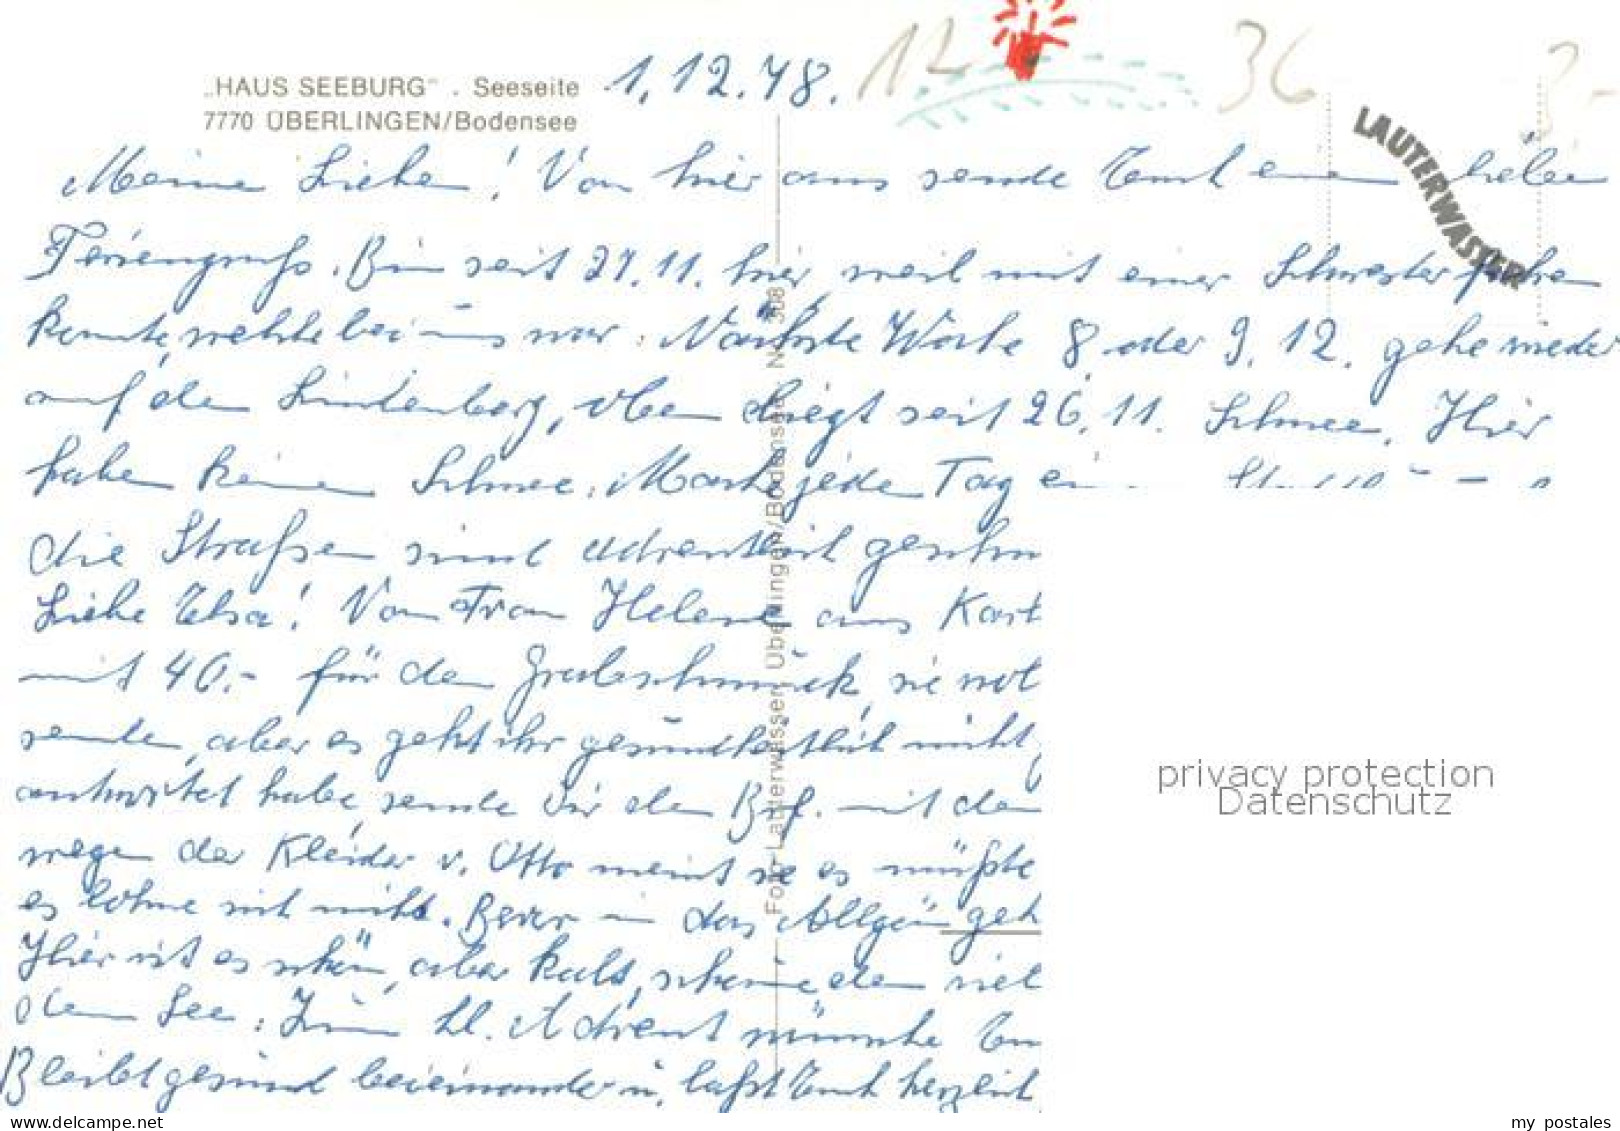 „HAUS SEEBURG" . Seeseite
7770 ÜBERLINGEN/Bodensee
1.12.78.
12
36
3.-
LAUTERWASSER
Meine Lieben! Von hier aus sende Euch einen
Feriengruß. Bin seit 27.11. hier, weil mit einer Schwester fahren
konnte, welche bei uns war. Nächste Woche 8. oder 9.12. gehe wieder
auf den Lindenberg, oben liegt seit 26.11. Schnee. Hier
haben keinen Schnee. Mache jeden Tag
die Straßen sind adventlich geschm
Liebe Elsa! Von Frau Helene aus Kart
mit 40.- für den Grabschmuck, sie wol
senden, aber es geht ihr gesundheitlich nicht,
antwortet habe, sende Dir den Brf. mit den
wegen der Kleider v. Otto meint sie es müßte
es lohne sich nicht. Bevor in das Allgäu geh
Hier ist es schön, aber kalt,
dem See. Zum hl. Advent wünsche Eu
Bleibt gesund beieinander u. laßt Euch herzlich
Foto Lauterwasser, Überlingen/Bodensee
privacy protection
Datenschutz
my postales
www.delcampe.net